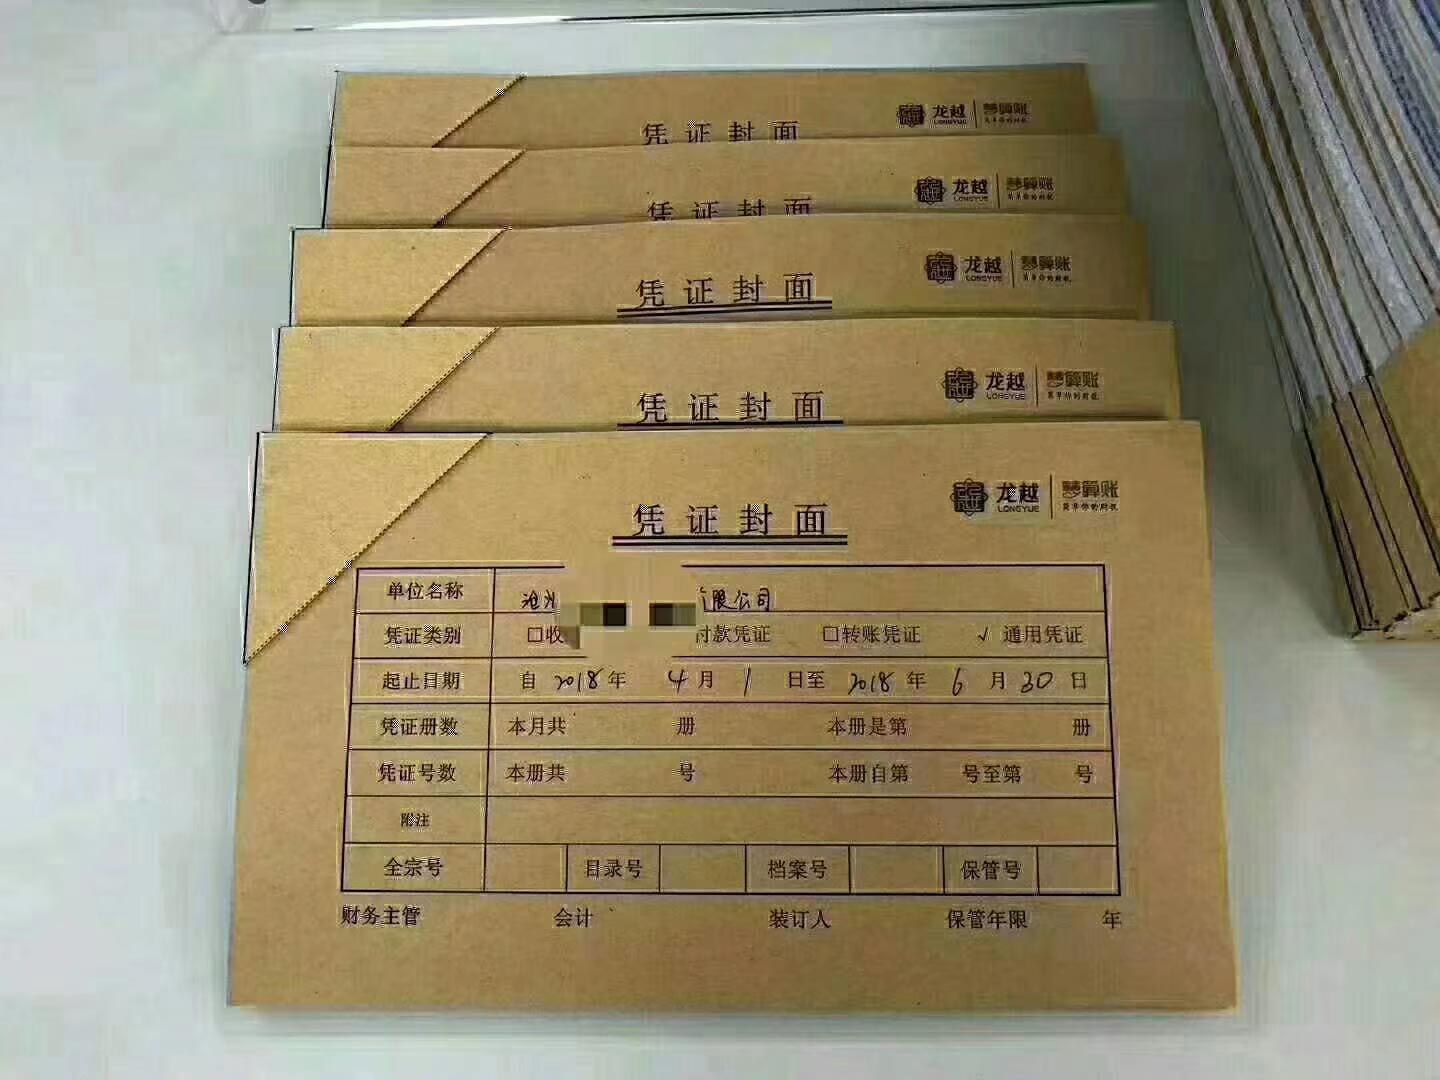 凭证封面
龙越 慧算账
LONGYUE
凭证封面
龙越 慧算账
LONGYUE
凭证封面
龙越 慧算账
LONGYUE 简单你的财税
凭证封面
龙越 慧算账
LONGYUE 简单你的财税
龙越 慧算账
LONGYUE 简单你的财税
凭证封面
单位名称 沧 限公司
凭证类别 □收 付款凭证 □转账凭证 √ 通用凭证
起止日期 自 2018 年 4 月 1 日至 2018 年 6 月 30 日
凭证册数 本月共 册 本册是第 册
凭证号数 本册共 号 本册自第 号至第 号
附注
全宗号 目录号 档案号 保管号
财务主管 会计 装订人 保管年限 年